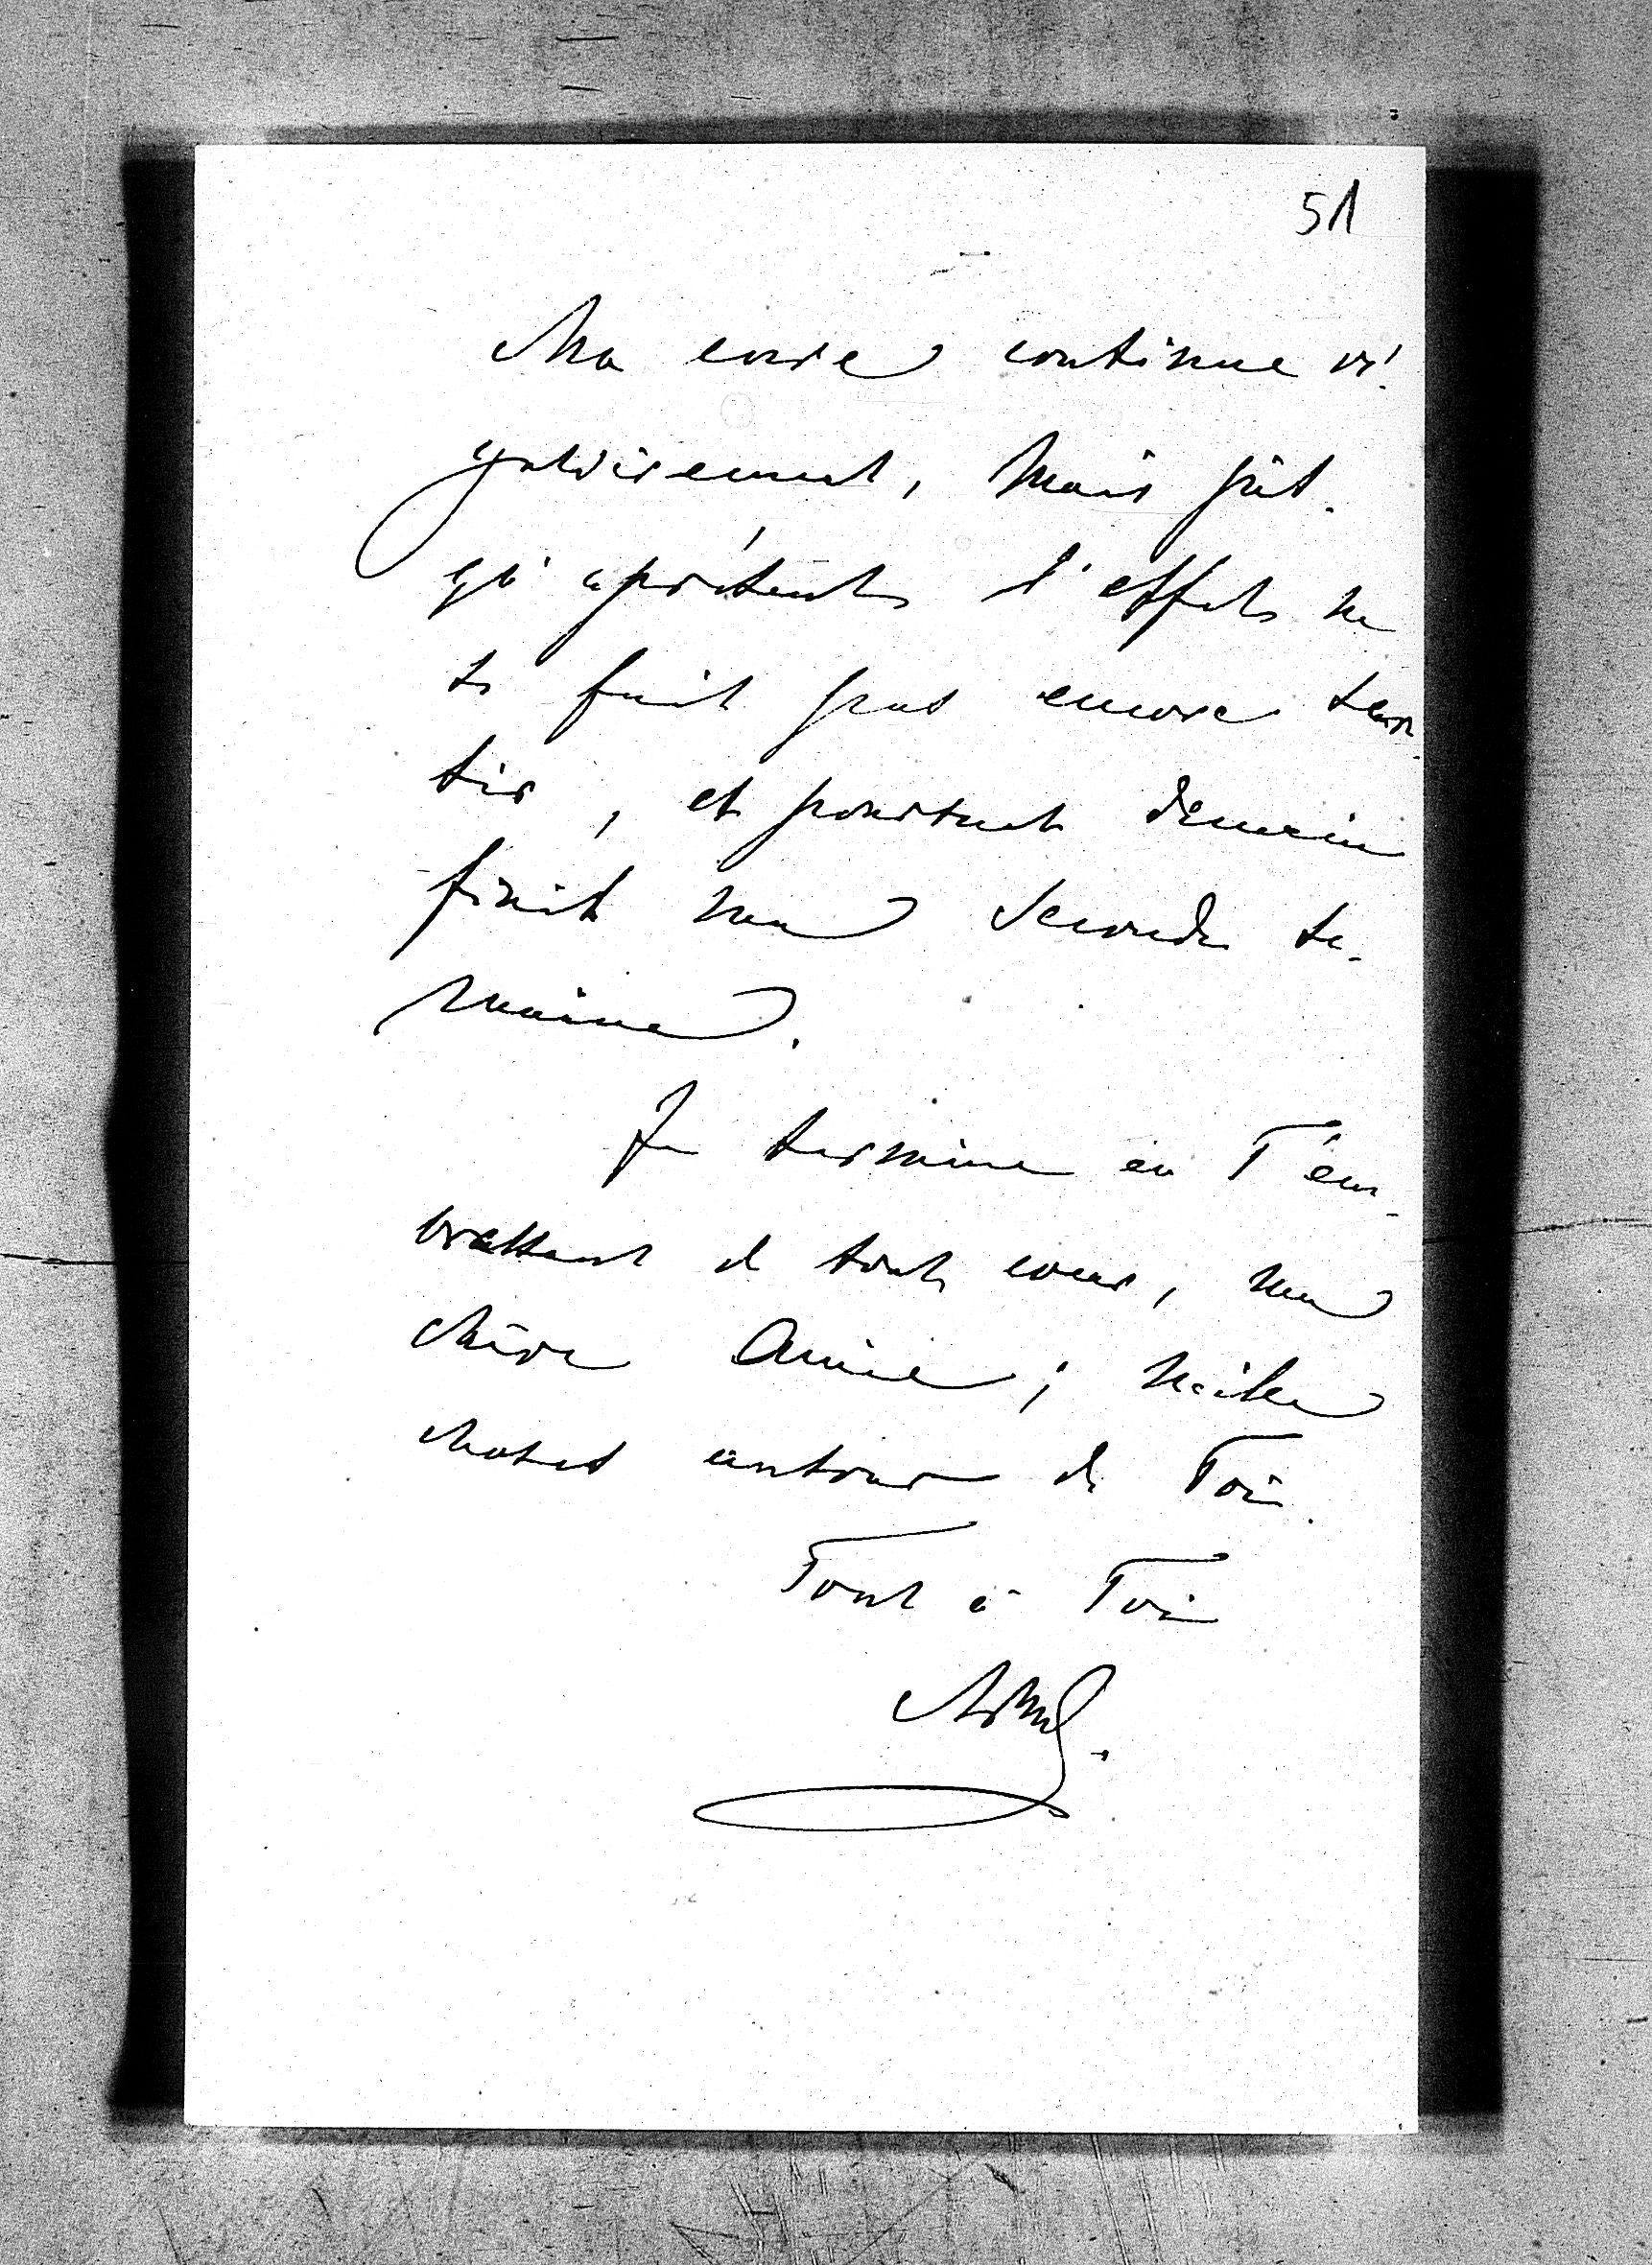 51
Ma cure continue vi-
goureusement, mais jus-
qu'aprésent l'effet ne
se fait pas encore sen-
tir, et pourtant demain
finit ma seconde se-
maine.
Je termine en T'em-
brassant de tout coeur, ma
chère Amie; mille
choses autour de Toi.
Tout à Toi